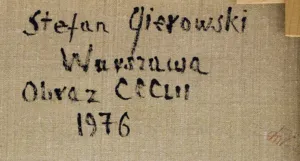 Stefan Gierowski
Warszawa
Obraz CCCLII
1976